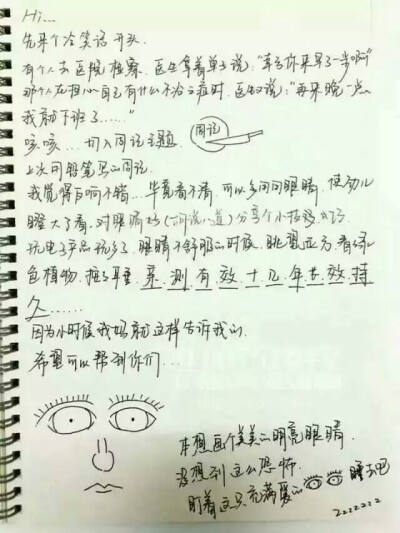 Hi...
先来个冷笑话开头.
有个人去医院检察. 医生拿着单子说:"幸亏你来早了一步啊"
那个人在担心自己有什么不治之症时. 医生又说:"再来晚一点
我就下班了......"
咳咳... 切入周记主题. 周记
上次用铅笔写的周记.
我觉得反响不错... 毕竟看不清, 可以多用用眼睛, 使劲儿
瞪大了看. 对眼睛好(一阵胡说八道)分享个小技巧
玩电子产品玩多了, 眼睛不舒服的时候. 眺望远方. 看绿
色植物. 亲测有效 十几年长效持
久......
因为小时候我妈就这样告诉我的.
希望可以帮到你们...
本想画个美美的明亮眼睛.
没想到这么恐怖.
盯着这只充满爱的 睡吧
zzzzzzz